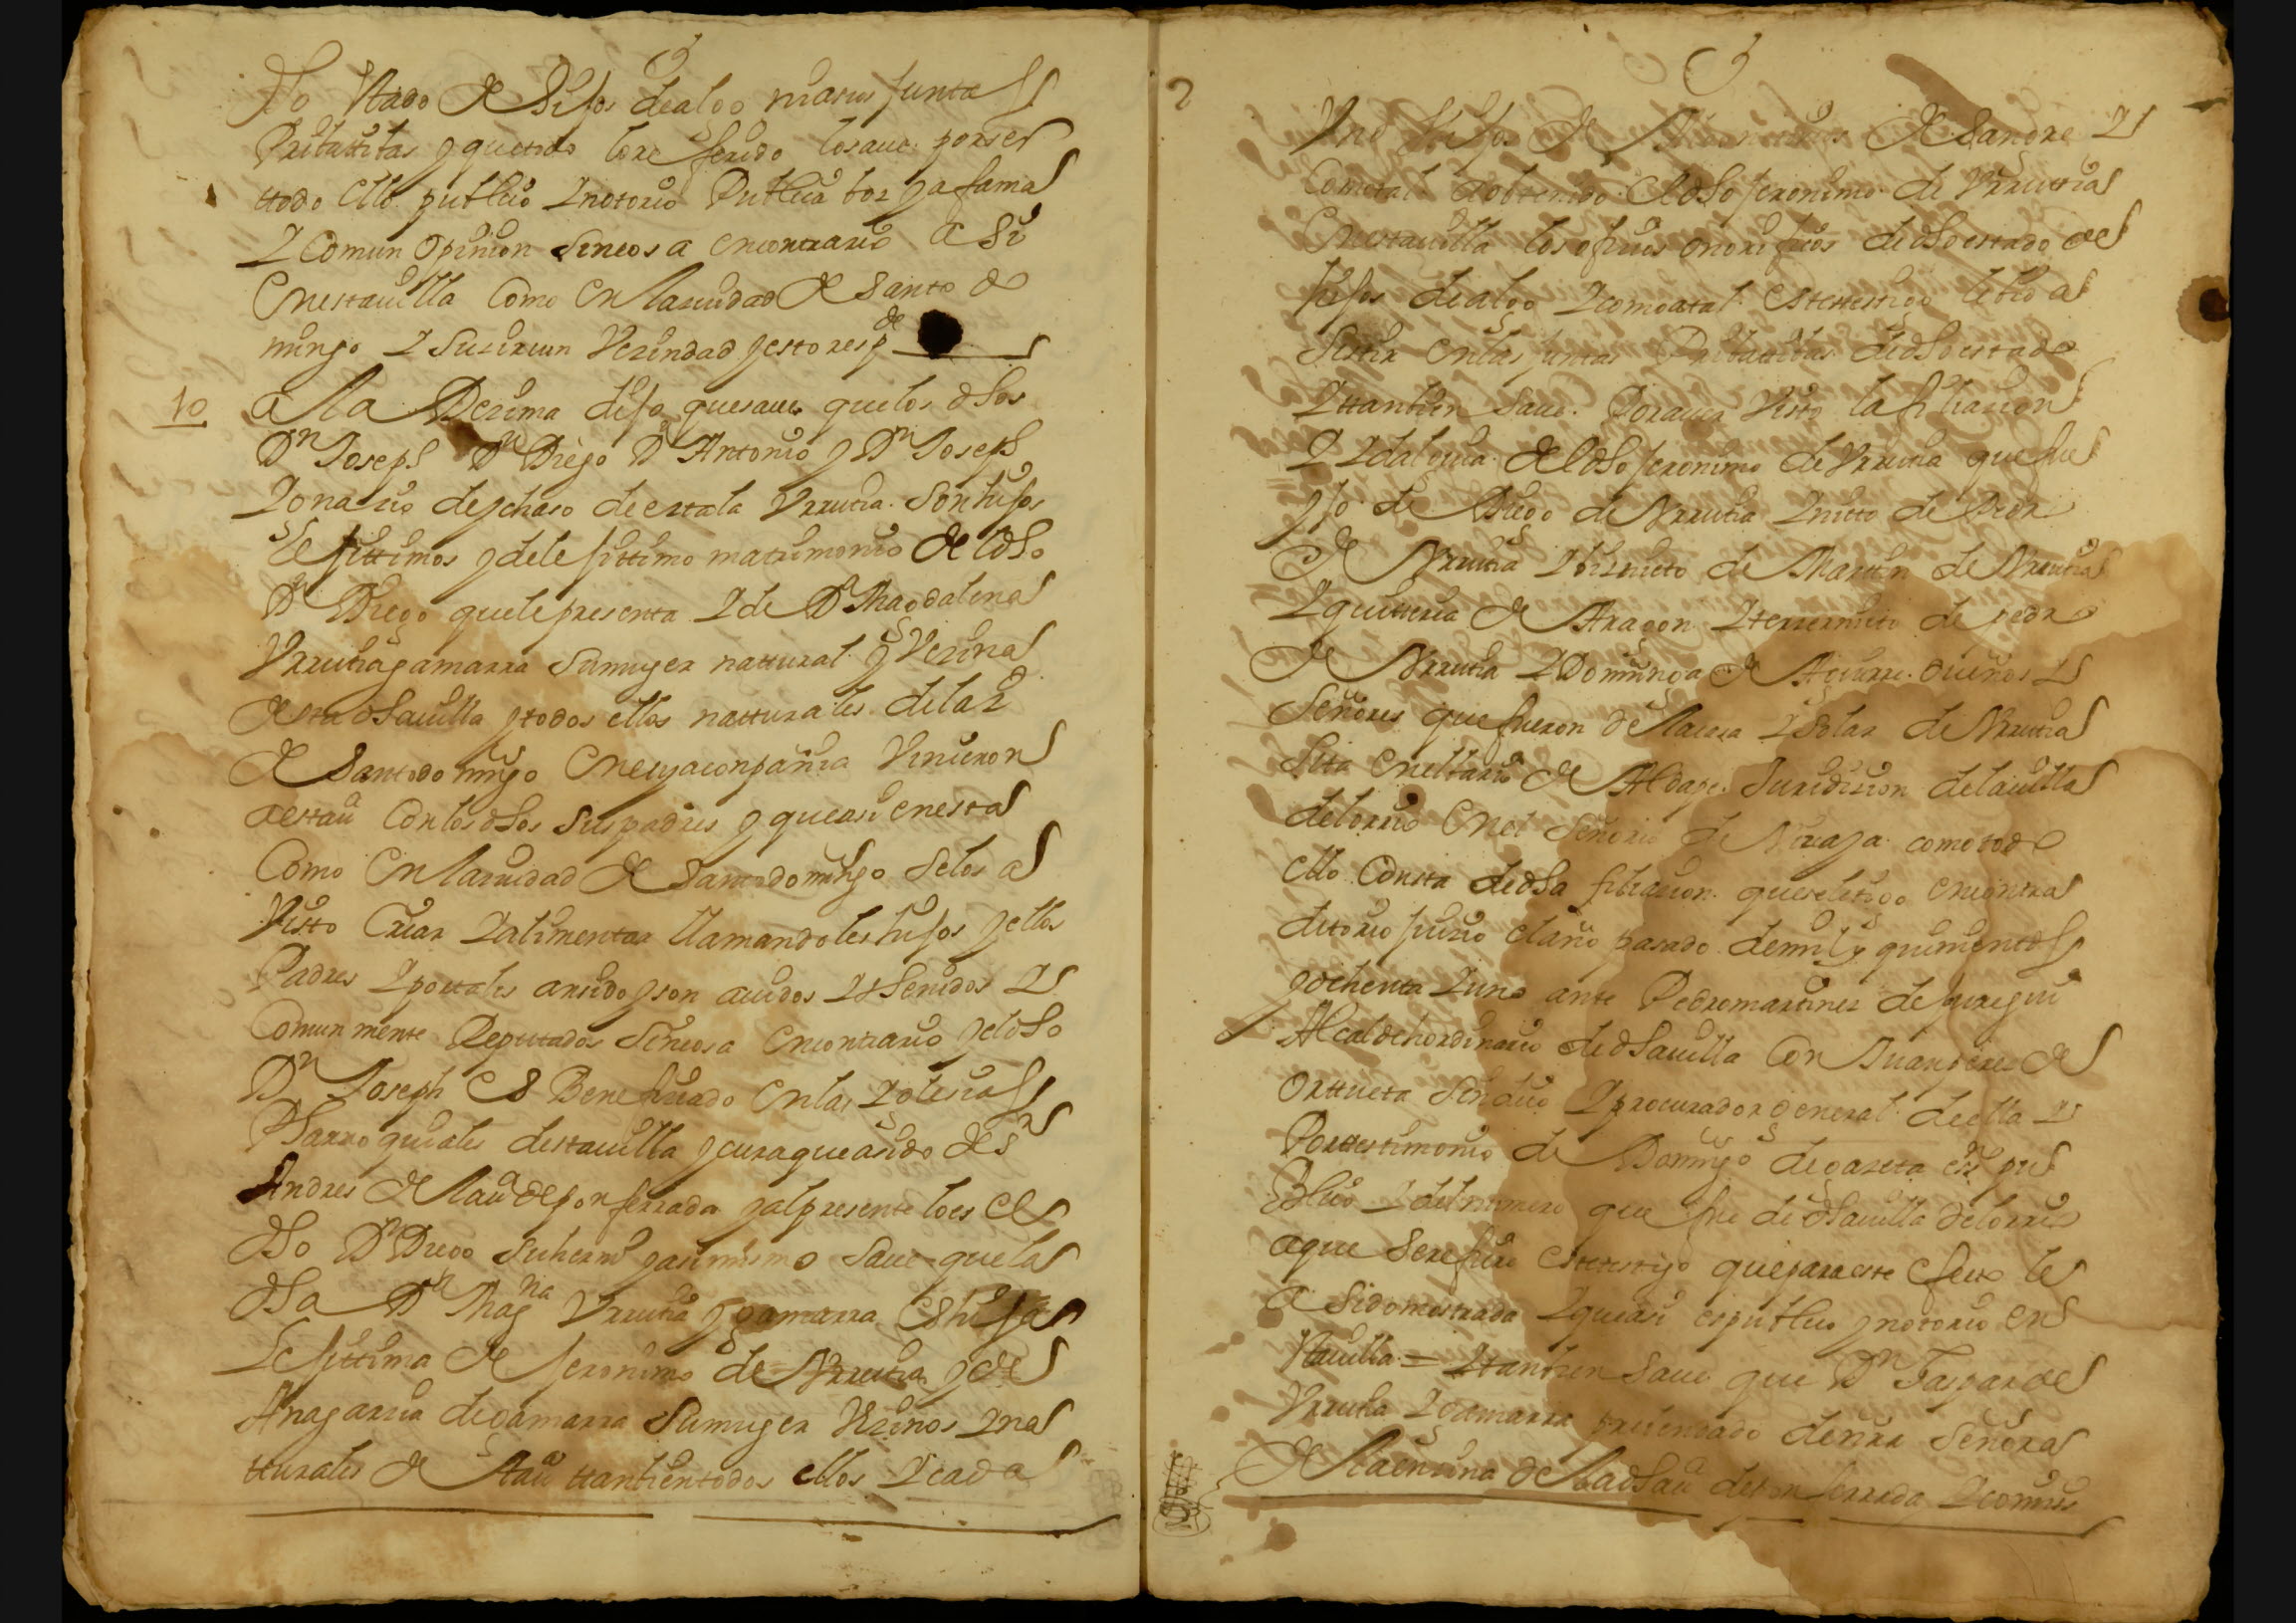 dho stado de Hijos dealgo en las juntas
Pribatibas y que todo lo referido losave. por ser
ttodo ello publico Y notorio Publica boz y a fama
Y Comun Opinion sin cosa encontrario a si
En esta uilla Como En la ciudad de Santo do
mingo Y su circun Vezindad y esto respde
10 a la Dezima dijo que saue que los dhos
Dn Joseph Dn Diego Dn Antonio y Dn Joseph
Ygnacio de ochaso de Urrutia. son hijos
Lexittimos y de lexittimo matrimonio del dho
Dn Diego que le presenta Y de Da Magdalena
Urrutia y gamarra su muger nattural y Vezina
desta dha uilla y todos ellos natturales de la zd
de Santo domingo En cuya conpañia Vinieron
a esta ua Con los dhos sus padres y que asi en esta
Como En la ciudad de Santo domingo se los a
Visto Criar Y alimentar llamandoles hijos y ellos
Padres Y por tales an sido y son auidos Y thenidos Y
Comun mente Reputados sin cosa Encontrario y el dho
Dn Joseph Es Beneficiado En las Yglesias
Parroquiales desta uilla y cura que a sido de Sn
Andres de la ua de ponferrada y al presente lo es el
dho Dn Diego su hermo y asi mismo Saue que la
dha Da Magna Urrutia y gamarra Es hija
Lexittima de Jeronimo de Urrutia y de
Ana garcia de gamarra Su muger Vezinos Y na
tturales de esta ua ttanbien todos ellos Y cada
2
Uno Hijos de de Sangre Y
Como tal a obtenido El dho Jeronimo de Urrutia
En esta uilla los ofizios onorificos de dho estado de
hijos dealgo Y como a tal este testigo le bio a
sistir En las juntas Pribatibas de dho estado
Y ttanbien saue. Por auer Visto la filiacion
Y Ydalguia del dho Jeronimo de Urrutia que fue
yjo de Diego de Urrutia Y nieto de Pedro
de Urrutia Y biznieto de Martin de Urrutia
Y quiteria de Aragon Y terzer nieto de Pedro
de Urrutia Y Dominga de dueños Y
Señores que fueron de la casa Y Solar de Urrutia
Sita En el bario de Aldape. Juridizion de la uilla
de lorrio En el Señorio de Vizcaya como todo
ello Consta de dha filiacion. que se litigo En contra
ditorio juicio el año pasado de mil y quinientos
y ochenta Y uno ante Pedro martinez de jauregui
Alcalde hordinario de dha uilla Con Juan perez de
Ortueta Sindico Y procurador general de ella Y
Por testimonio de Domingo de gazeta esno pu
Blico Y del numero que fue de dha uilla de lorrio
a que se refiere este testigo que para este efecto le
a sido mostrada Y que asi es publico y notorio en
sta uilla = Y tanbien saue que Dn Gaspar de
Urrutia Y gamarra prebendado de nra Señora
de la encina de la dha ua de ponferrada Y comis